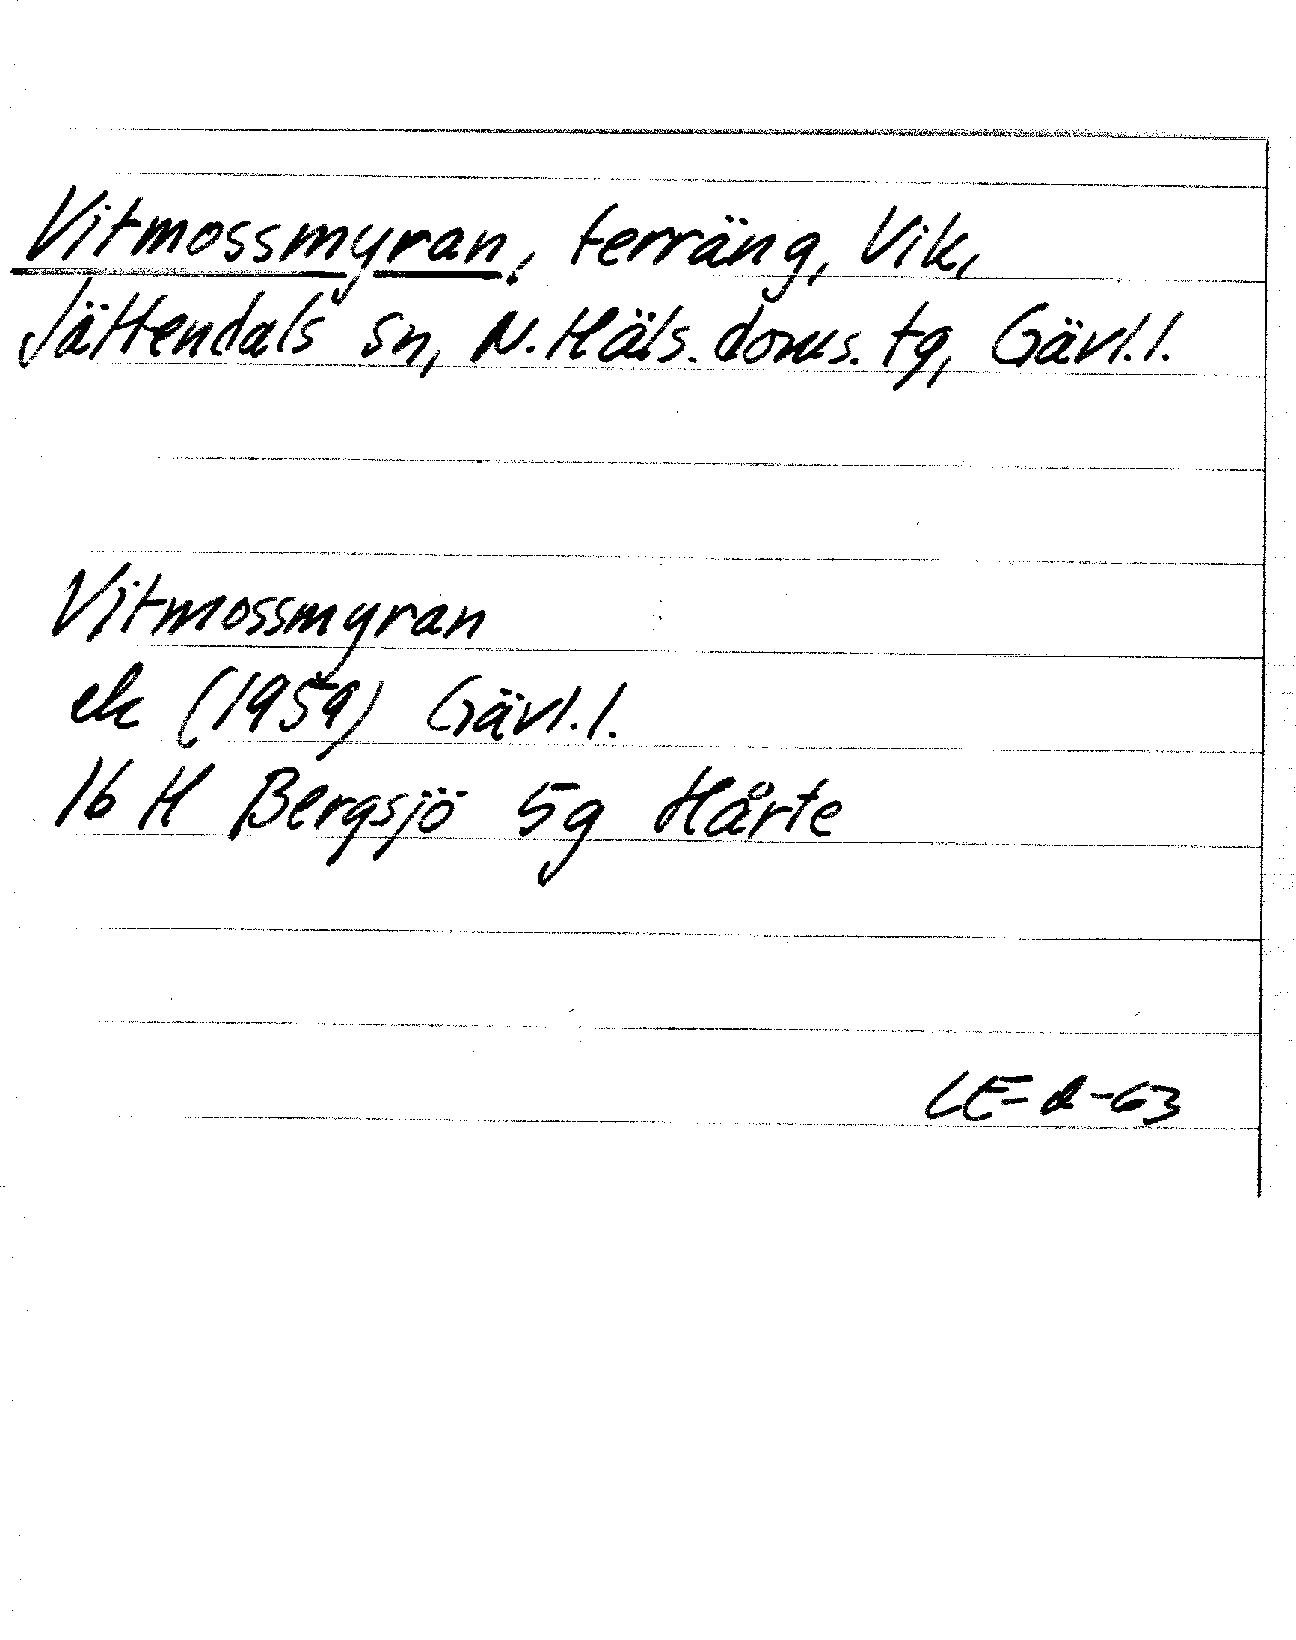 Vitmossmyran, terräng, Vik,
Jättendals sn, N. Häls. doms. tg, Gävl. l.
Vitmossmyran
ek (1959) Gävl. l.
16 H Bergsjö 5g Hårte
LE-d-63